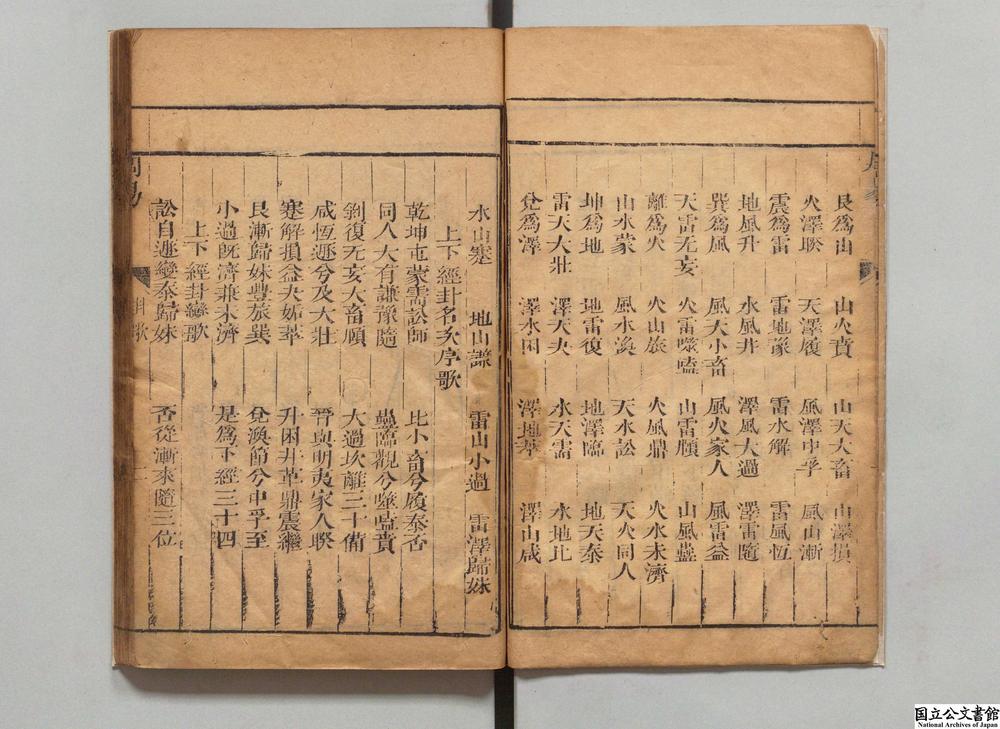 艮爲山 山火賁 山天大畜 山澤損
火澤睽 天澤履 風澤中孚 風山漸
震爲雷 雷地豫 雷水解 雷風恆
地風升 水風井 澤風大過 澤雷隨
巽爲風 風天小畜 風火家人 風雷益
天雷无妄 火雷噬嗑 山雷頤 山風蠱
離爲火 火山旅 火風鼎 火水未濟
山水蒙 風水渙 天水訟 天火同人
坤爲地 地雷復 地澤臨 地天泰
雷天大壯 澤天夬 水天需 水地比
兌爲澤 澤水困 澤地萃 澤山咸
水山蹇 地山謙 雷山小過 雷澤歸妹
上下經卦名次序歌
乾坤屯蒙需訟師 比小畜兮履泰否
同人大有謙豫隨 蠱臨觀兮噬嗑賁
剝復无妄大畜頤 大過坎離三十備
咸恆遯兮及大壯 晉與明夷家人睽
蹇解損益夬姤萃 升困井革鼎震繼
艮漸歸妹豐旅巽 兌渙節兮中孚至
小過旣濟兼未濟 是爲下經三十四
上下經卦變歌
訟自遯變泰歸妹 否從漸來隨三位
周易
卦歌
国立公文書館
National Archives of Japan